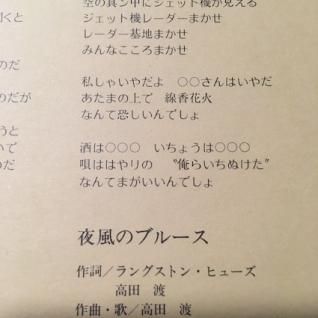 空の真ン中にジェット機が見える
ジェット機レーダーまかせ
レーダー基地まかせ
みんなこころまかせ
私しゃいやだよ　○○さんはいやだ
あたまの上で　線香花火
なんて恐しいんでしょ
酒は○○○　いちょうは○○○
唄ははやりの　〝俺らいちぬけた〟
なんてまがいいんでしょ
くと
のだ
のだが
うと
いで
のだ
夜風のブルース
作詞／ラングストン・ヒューズ
高田　渡
作曲・歌／高田　渡